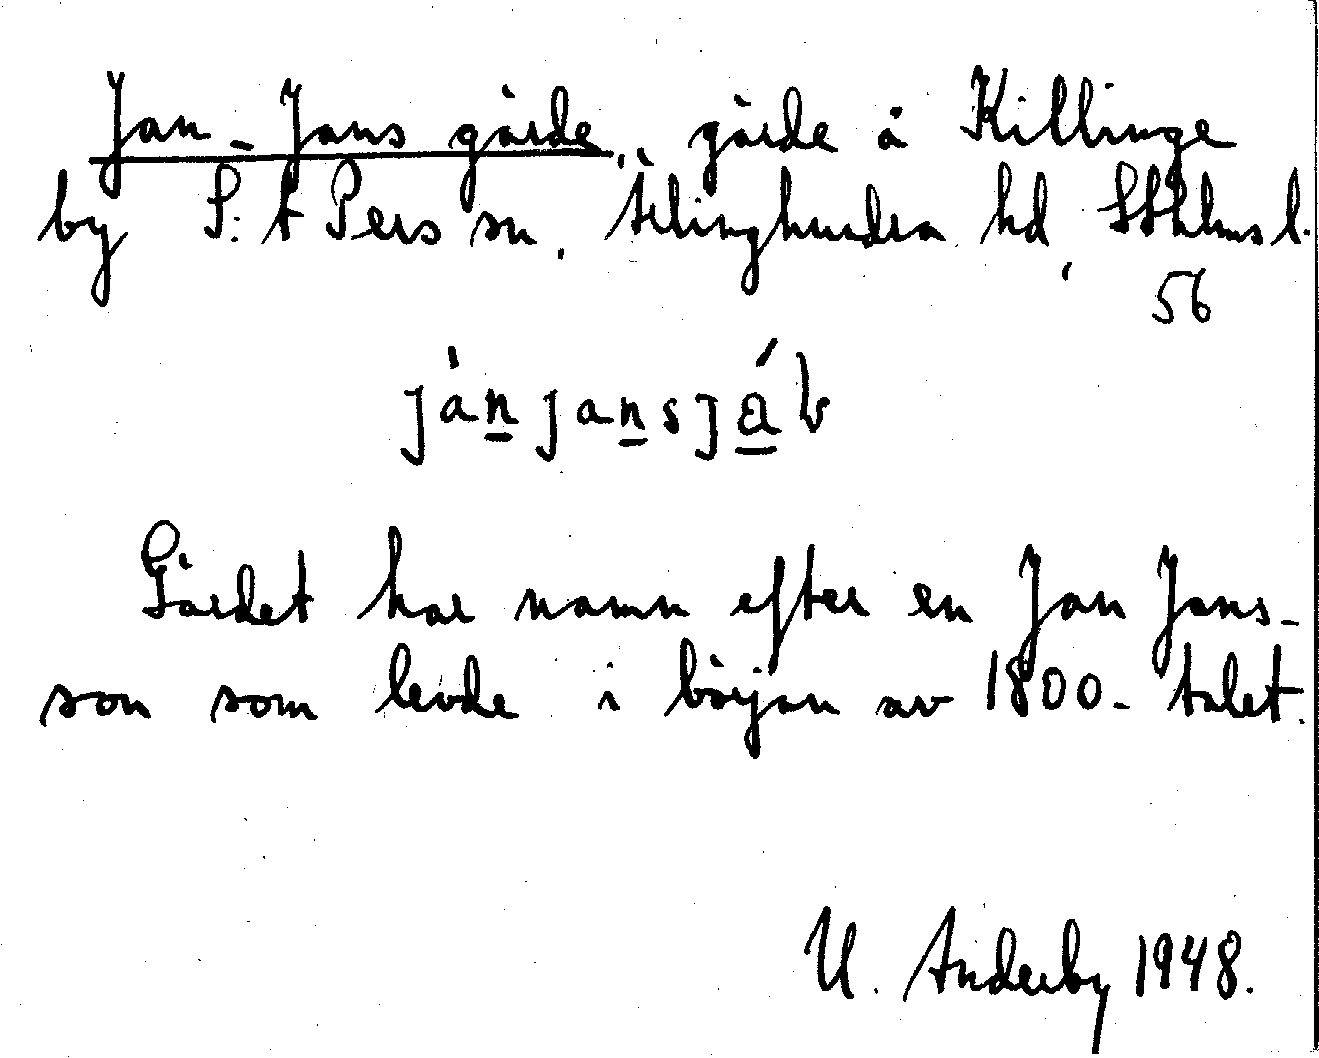 Jan-Jans gärde, gärde å Killinge
by S:t Pers sn, Ärlinghundra hd, Sthlms l.
56
jànjansjáb
Gärdet har namn efter en Jan Jans-
son som levde i början av 1800-talet.
U. Anderby 1948.